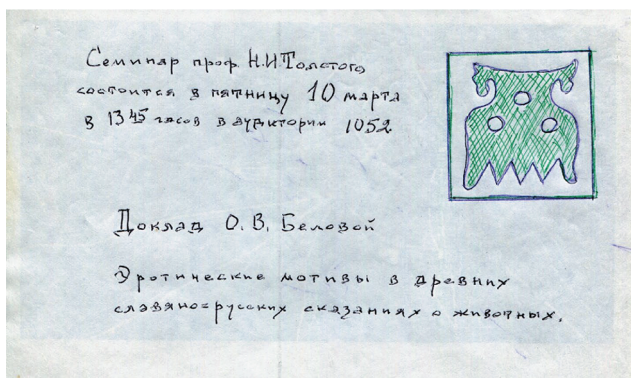 Семинар проф. Н.И Толстого
состоится в пятницу 10 марта
в 13 45 часов в аудитории 1052
Доклад О. В. Беловой
Эротические мотивы в древних
славяно=русских сказаниях о животных.